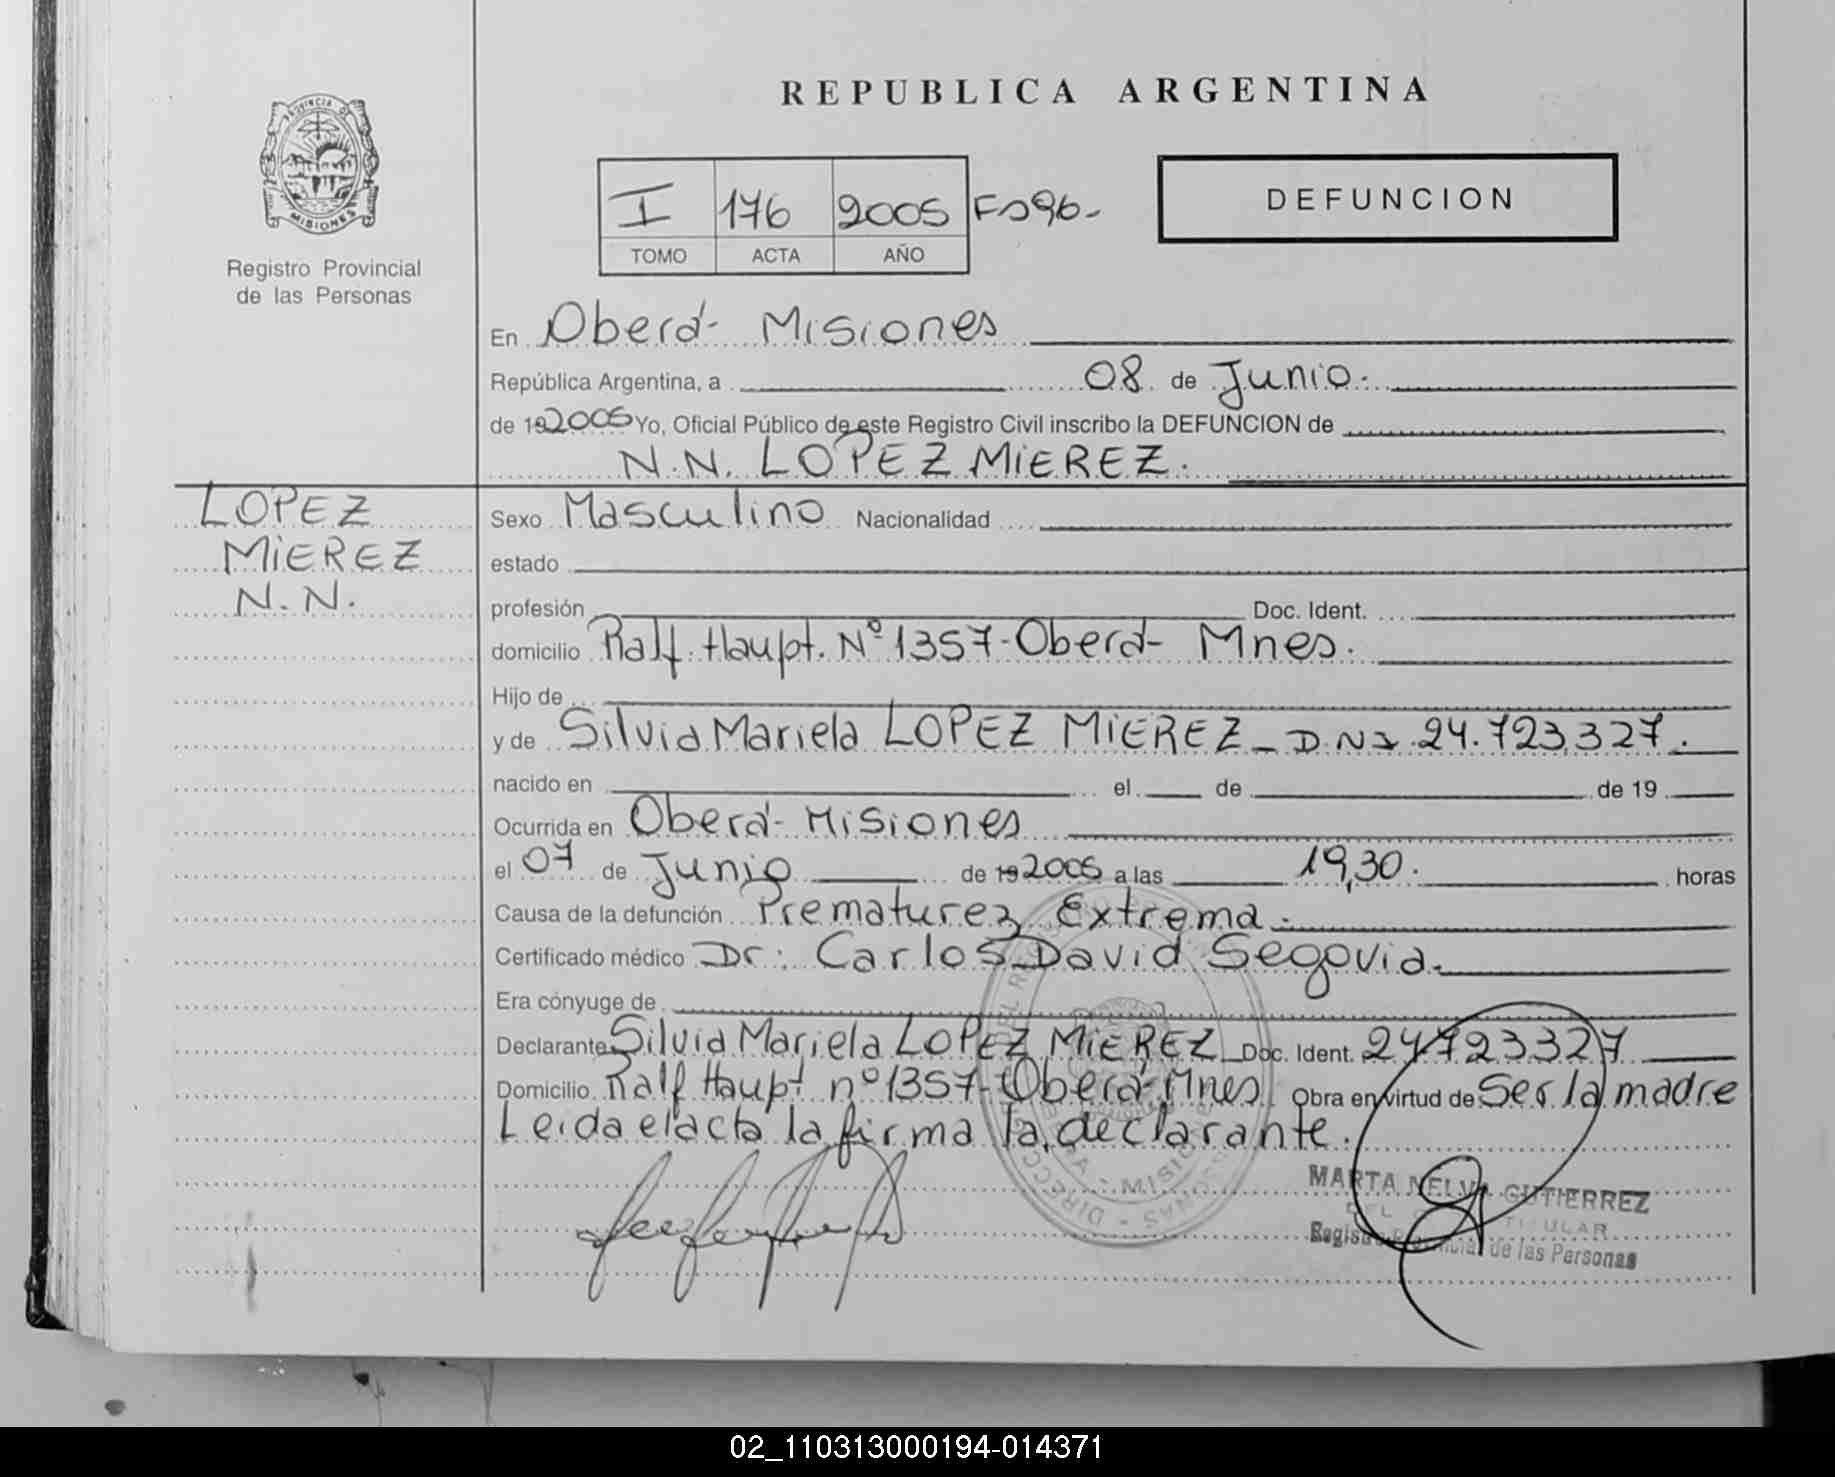 REPUBLICA ARGENTINA
PROVINCIA D
MISIONES
Registro Provincial
de las Personas
I 176 2005 Fº 96-
TOMO ACTA AÑO
DEFUNCION
En Oberá- Misiones
República Argentina, a 08 de Junio.
de 192005 Yo, Oficial Público de este Registro Civil inscribo la DEFUNCION de
N.N. LOPEZ MIEREZ.
LOPEZ
MIEREZ
N.N.
Sexo Masculino Nacionalidad
estado
profesión Doc. Ident.
domicilio Ralf. Haupt. Nº 1357-Oberá- Mnes.
Hijo de
y de Silvia Mariela LOPEZ MIEREZ_ D.N.I. 24.723.327.
nacido en el de de 19
Ocurrida en Oberá- Misiones
el 07 de Junio de 192005 a las 19,30. horas
Causa de la defunción Prematurez Extrema.
Certificado médico Dr: Carlos David Segovia.
Era cónyuge de
Declarante Silvia Mariela LOPEZ MIEREZ Doc. Ident. 24723327
Domicilio Ralf Haupt nº 1357-Oberá-Mnes. Obra en virtud de Ser la madre
Leida el acta la firma la declarante.
MARTA NELVA GUTIERREZ
TITULAR
Registro Provincial de las Personas
02_110313000194-014371